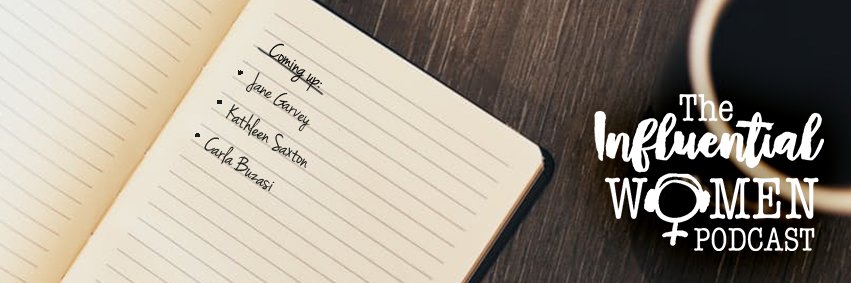 Coming up:
• Jane Garvey
• Kathleen Saxton
• Carla Buzasi
The
Influential
WOMEN
PODCAST